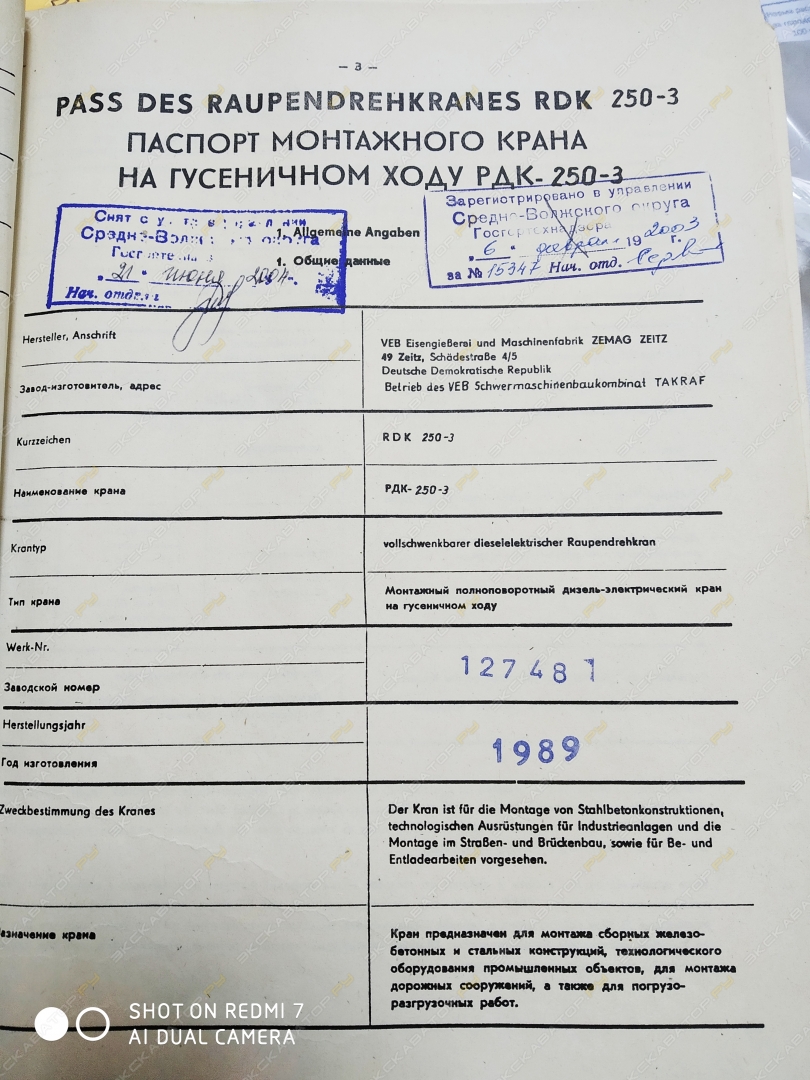 – 3 –
PASS DES RAUPENDREHKRANES RDK 250-3
ПАСПОРТ МОНТАЖНОГО КРАНА
НА ГУСЕНИЧНОМ ХОДУ РДК- 250-3
Зарегистрировано в управлении
Средне-Волжского округа
Госгортехнадзора
„ 6 " февраля 19 2003 г.
за № 15347 Нач. отд.
Снят с
Средне-Волжского округа
„ 21 " июня 2004 г.
Нач. отдела
1. Allgemeine Angaben
1. Общие данные
Hersteller, Anschrift
Завод-изготовитель, адрес
VEB Eisengießerei und Maschinenfabrik ZEMAG ZEITZ
49 Zeitz, Schädestraße 4/5
Deutsche Demokratische Republik
Betrieb des VEB Schwermaschinenbaukombinat TAKRAF
Kurzzeichen
RDK 250-3
Наименование крана
РДК- 250-3
Krantyp
vollschwenkbarer dieselelektrischer Raupendrehkran
Тип крана
Монтажный полноповоротный дизель-электрический кран
на гусеничном ходу
Werk-Nr.
Заводской номер
127481
Herstellungsjahr
Год изготовления
1989
Zweckbestimmung des Kranes
Der Kran ist für die Montage von Stahlbetonkonstruktionen,
technologischen Ausrüstungen für Industrieanlagen und die
Montage im Straßen- und Brückenbau, sowie für Be- und
Entladearbeiten vorgesehen.
азначение крана
Кран предназначен для монтажа сборных железо-
бетонных и стальных конструкций, технологического
оборудования промышленных объектов, для монтажа
дорожных сооружений, а также для погрузо-
разгрузочных работ.
SHOT ON REDMI 7
AI DUAL CAMERA
ЭКСКАВАТОР РУ